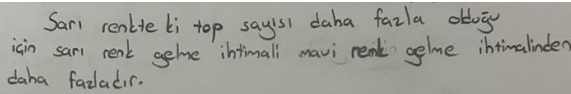 Sarı renkte ki top sayısı daha fazla olduğu
için sarı renk gelme ihtimali mavi renk gelme ihtimalinden
daha fazladır.